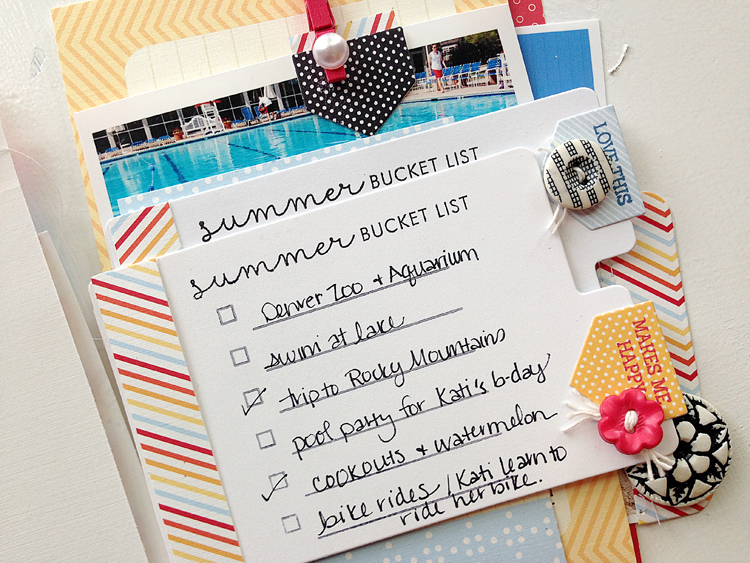 summer BUCKET LIST
summer BUCKET LIST
Denver Zoo + Aquarium
swim at lake
trip to Rocky Mountains
pool party for Kati's b-day
cookouts + watermelon
bike rides / Kati learn to
ride her bike.
LOVE THIS
MAKES ME
HAPPY